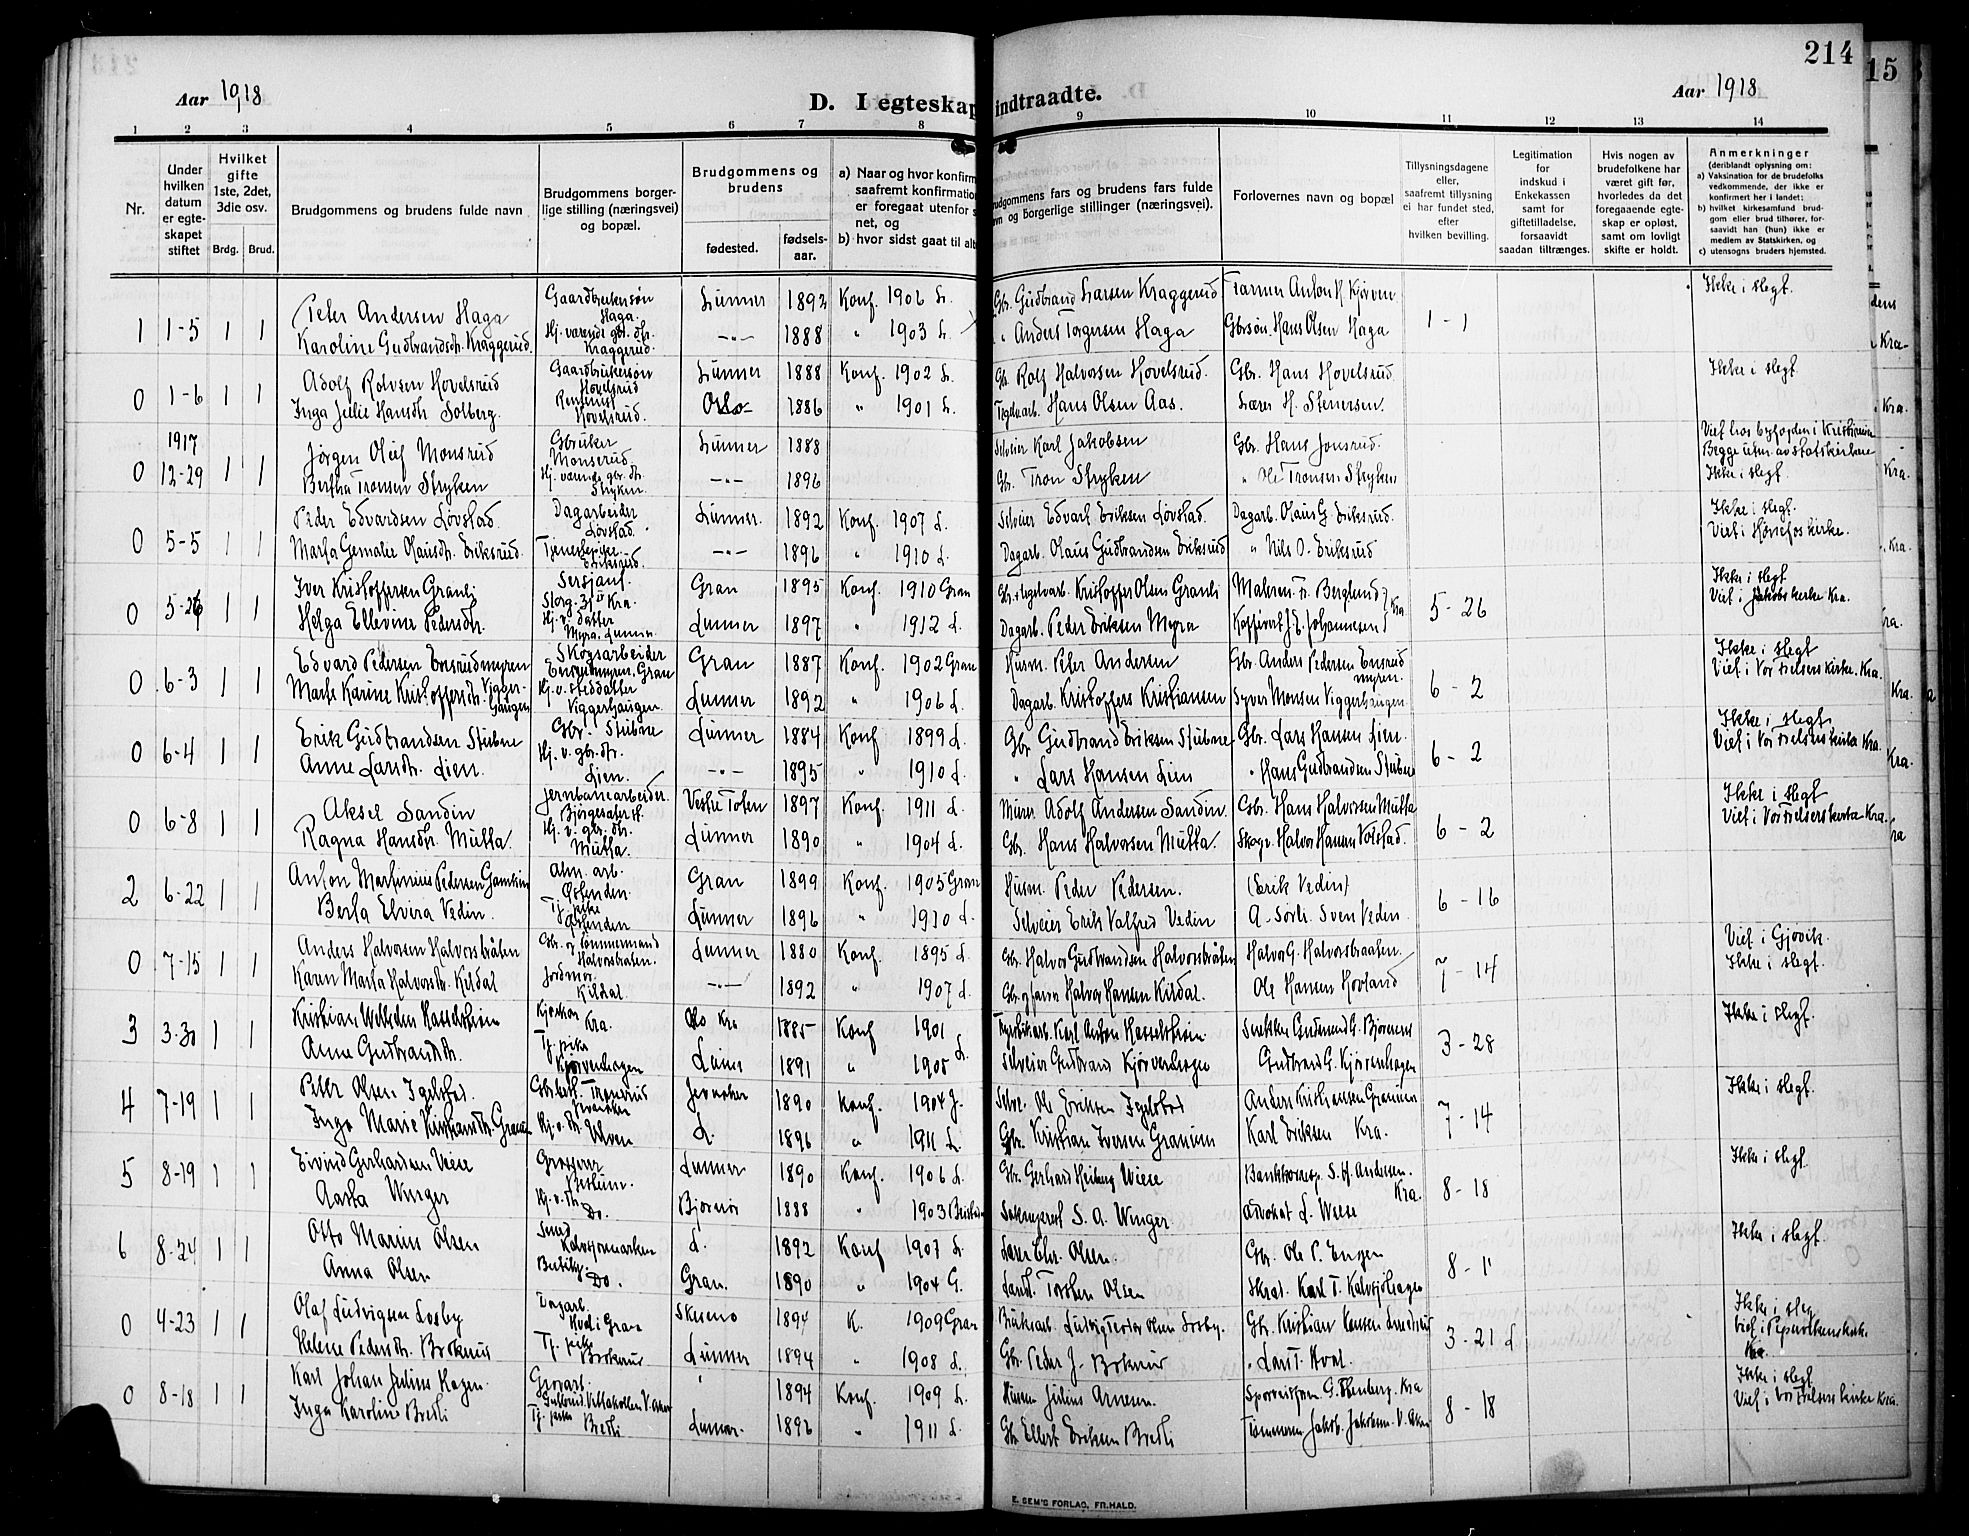 214
15
Aar 1918
D. I egteskap indtraadte.
Aar 1918
1 2 3 4 5 6 7 8 9 10 11 12 13 14
Nr.
Under hvilken datum er egteskapet stiftet
Hvilket gifte 1ste, 2det, 3die osv.
Brdg. Brud.
Brudgommens og brudens fulde navn
Brudgommens borgerlige stilling (næringsvei) og bopæl.
Brudgommens og brudens
fødested. fødselsaar.
a) Naar og hvor konfirm
saafremt konfirmation
er foregaat utenfor s
net, og
b) hvor sidst gaat til alt
udgommens fars og brudens fars fulde
vn og borgerlige stillinger (næringsvei).
Forlovernes navn og bopæl
Tillysningsdagene eller, saafremt tillysning ei har fundet sted, efter hvilken bevilling.
Legitimation for indskud i Enkekassen samt for giftetilladelse, forsaavidt saadan tiltrænges.
Hvis nogen av brudefolkene har været gift før, hvorledes da det foregaaende egteskap er opløst, samt om lovligt skifte er holdt.
Anmerkninger
(deriblandt oplysning om:
a) Vaksination for de brudefolks vedkommende, der ikke er konfirmert her i landet;
b) hvilket kirkesamfund brudgom eller brud tilhører, forsaavidt han (hun) ikke er medlem av Statskirken, og
c) utensogns bruders hjemsted.
1 1-5 1 1 Peter Andersen Haga Gaardbrukersøn Haga. Lunner 1892 Konf. 1906 L. Gbr. Gudbrand Larsen Kraggerud Farmer Anton H. Kjørven 1-1 Ikke i slegt.
Karoline Gudbrandsdtr. Kraggerud. Hj. værende gbr. dtr. Kraggerud. -"- 1888 " 1903 L. " Anders Torgersen Haga Gbrsøn. Hans Olsen Haga
0 1-6 1 1 Adolf Rolvsen Hovelsrud Gaardbrukersøn Hovelsrud Lunner 1888 Konf. 1902 L. Gb. Rolf Halvorsen Hovelsrud. Gbr. Hans Hovelsrud. Ikke i slegt.
Inga Jullie Hansdtr. Solberg. Hovelsrud. Oslo 1886 " 1901 L. Hans Olsen Aas. Lærer H. Stenersen.
0 1917 12-29 1 1 Jørgen Oluf Monsrud Gbruker Monserud. Lunner 1888 Selveier Karl Jakobsen Gb. Hans Jonsrud. Viet hos byfogden i Kristiania
Begge utm. av statskirken
Bertha Tronsen Stryken Hj. værende gbr. dtr. Stryken. -"- 1896 Gb. Tron Stryken " Ole Tronsen Stryken Ikke i slegt.
0 5-5 1 1 Peder Edvardsen Løvstad. Dagarbeider Løvstad. Lunner. 1892 Konf. 1907 L. Selveier Edvart Eriksen Løvstad. Dagarb. Olaus G Eriksrud. Ikke i slegt.
Marta Gemalie Olausdtr. Eriksrud. Tjenestepike Eriksrud. -"- 1896 " 1910 L. Dagarb. Olaus Gudbrandsen Eriksrud " Nils O. Eriksrud Viet i Hønefos kirke.
0 5-26 1 1 Iver Kristoffersen Granli Sersjant. Storg. Kra. Gran 1895 Konf. 1910 Gran Kristoffer Olsen Granli Maleren Fr. Berglund 5-26 Ikke i slegt
Helga Ellevine Pedersdtr. Hj. v. datter Myra. Lunner. Lunner 1897 " 1912 L. Dagarb. Peder Eriksen Myra Johannesen Kra. Viet i Jakobs kirke Kra.
0 6-3 1 1 Edvard Pedersen Ensrudmyren Skogsarbeider Ensrudmyren. Gran Gran 1887 Konf. 1902 Gran Husm. Peter Andersen Gbr. Anders Pedersen Ensrud myren. 6-2 Ikke i slegt
Marte Karine Kristoffersdtr. Viggerhaugen Hj. v. steddatter Viggerhaugen. Lunner 1892 " 1906 L. Dagarb. Kristoffers Kristiansen Syver Monsen Viggerhaugen Viet i Vor Frelsers kirke. Kra.
0 6-4 1 1 Erik Gudbrandsen Stubne Gbr. Stubne Lunner 1884 Konf 1899 L. Gbr Gudbrand Eriksen Stubne Gbr. Lars Hansen Lien. 6-2 Ikke i slegt,
Anne Larsdtr. Lien. Hj. v. gbr. dtr. Lien. -"- 1895 " 1910 L. " Lars Hansen Lien " Hans Gudbrandsen Stubne Viet i Vor Frelsers kirke Kra.
0 6-8 1 1 Aksel Sandin Jernbanearbeider. Vestre Toten 1897 Konf. 1911 L. Murer. Adolf Andersen Sandin. Gbr. Hans Halvorsen Mutta 6-2 Ikke i slegt
Ragna Hansdtr. Mutta. Hj. v. gbr. dtr. Mutta. Lunner 1890 " 1904 L. Gbr. Hans Halvorsen Mutta. Skogv. Halvor Hansen Volstad. Viet i Vor Frelsers kirke Kra.
2 6-22 1 1 Anton Martinius Pedersen Gamkinn Alm. arb. Østenden Gran 1899 Konf. 1905 Gran Husm. Peder Pedersen. (Erik Vedin) 6-16
Berta Elvira Vedin. Tj. pike Østenden Lunner 1896 " 1910 L. Selveier Erik Valfred Vedin A. Sørli. Sven Vedin.
0 7-15 1 1 Anders Halvorsen Halvorsbråten Gbr. og Tømmermand Halvorsbraten. Lunner 1880 Konf. 1895 L. Gbr. Halvor Gudbrandsen Halvorsbråten Halvor G. Halvorsbraaten. 7-14 Viet i Gjøvik.
Karen Marta Halvorsdtr. Kildal Jordmor. Kildal. -"- 1892 " 1907 L. Halvor Hansen Kildal. Ole Hansen Hovland Ikke i slegt.
3 3-30 1 1 Kristian Hasselstrøm Kra. Oslo Kra 1885 Konf 1901 Karl Anton Hasselstrøm Snekker Gudmund G. 3-28 Ikke i slegt.
Anne Gudbrandsdtr. Tj. pike Kjørvenhagen Lunner 1891 " 1905 L. Selveier Gudbrand Kjørvenhagen Gudbrand G. Kjørvenhagen
4 7-19 1 1 Peter Olsen Igelstad. Jevnaker Jevnaker 1890 Konf. 1904 J. Selve. Ole Eriksen Igelstad Anders Kristiansen Granum 7-14 Ikke i slegt.
Inga Marie Kristiansdtr. Granum Hj. v. dtr. Ulven L. 1896 " 1911 L. Gbr. Kristian Iversen Granum Karl Eriksen Kra.
5 8-19 1 1 Eivind Gerhardsen Wiese Grosserer Lunner 1890 Konf. 1906 L. Gbr. Gerhard Heiberg Wiese S. H. Andersen. Kra. 8-18 Ikke i slegt
Aasta Winger Hj. v. dtr. Do. Bjørnør 1888 " 1903 Sokneprest S. A. Winger Advokat L. Wiese
6 8-24 1 1 Otto Marius Olsen Smed Kalvsjømarken L. 1892 Konf 1907 L. Olsen. Gbr. Ole P. Engen 8-1 Ikke i slegt.
Anna Olsen Do. Gran. 1890 " 1904 G. Landh. Torsten Olsen Skrad. Karl T. Kalvsjøhagen
0 4-23 1 1 Olaf Ludvigsen Losby Dagarb. Gran 1894 K. 1909 Gran Olsen Losby. Gbr. Kristian Hansen 3-21 L Ikke i sleg
Helene Pedersdtr. Brokerud Tj. pike Brokerud Lunner 1894 " 1908 L. Gbr. Peder J. Brokerud " Lars T. Hval. Viet i Kra.
0 8-18 1 1 Karl Johan Julius Hagen. " 1894 Konf. 1909 L. Husm Julius Arnesen. G. Stenberg. Kra 8-18 Ikke i slegt
Inga Karoline Bredli Tj. pike Bredli Lunner. 1896 " 1911 L. Gb. Ellert Eriksen Bredli Tømmerm Jakob. Jakobsen. V. Aker Viet i Vor Frelsers kirke Kra.
E. SEM'S FORLAG, FR.HALD.